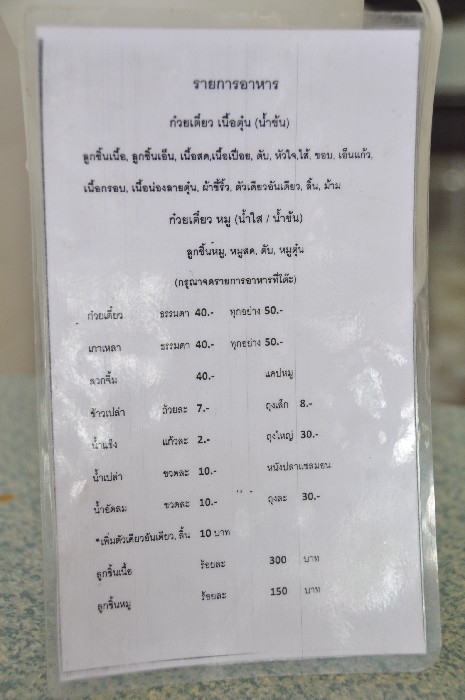 รายการอาหาร
ก๋วยเตี๋ยว เนื้อตุ๋น (น้ำข้น)
ลูกชิ้นเนื้อ, ลูกชิ้นเอ็น, เนื้อสด,เนื้อเปื่อย, ตับ, หัวใจ,ไส้, ขอบ, เอ็นแก้ว,
เนื้อกรอบ, เนื้อน่องลายตุ๋น, ผ้าขี้ริ้ว, ตัวเดียวอันเดียว, ลิ้น, ม้าม
ก๋วยเตี๋ยว หมู (น้ำใส / น้ำข้น)
ลูกชิ้นหมู, หมูสด, ตับ, หมูตุ๋น
(กรุณาจดรายการอาหารที่โต๊ะ)
ก๋วยเตี๋ยว ธรรมดา 40.- ทุกอย่าง 50.-
เกาเหลา ธรรมดา 40.- ทุกอย่าง 50.-
ลวกจิ้ม 40.- แคปหมู
ข้าวเปล่า ถ้วยละ 7.- ถุงเล็ก 8.-
น้ำแข็ง แก้วละ 2.- ถุงใหญ่ 30.-
น้ำเปล่า ขวดละ 10.- หนังปลาแซลมอน
น้ำอัดลม ขวดละ 10.- ถุงละ 30.-
*เพิ่มตัวเดียวอันเดียว, ลิ้น 10 บาท
ลูกชิ้นเนื้อ ร้อยละ 300 บาท
ลูกชิ้นหมู ร้อยละ 150 บาท